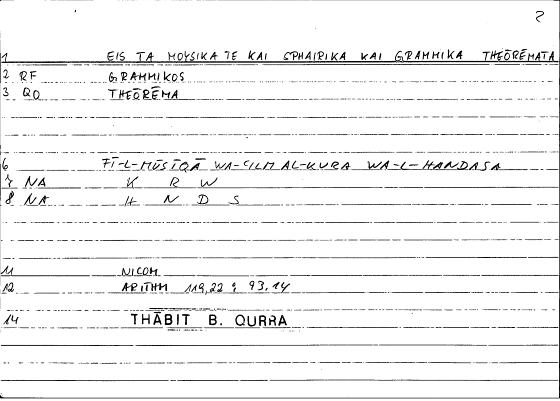 2
1 EIS TA MOYSIKA TE KAI SPHAIRIKA KAI GRAMMIKA THEŌRĒMATA
2 RF GRAMMIKOS
3 QO THEŌRĒMA
6 FĪ-L-MŪSĪQĀ WA-CILM AL-KURA WA-L-HANDASA
7 NA K R W
8 NA H N D S
11 NICOM
12 ARITHM 119,22 ; 93.14
14 THĀBIT B. QURRA